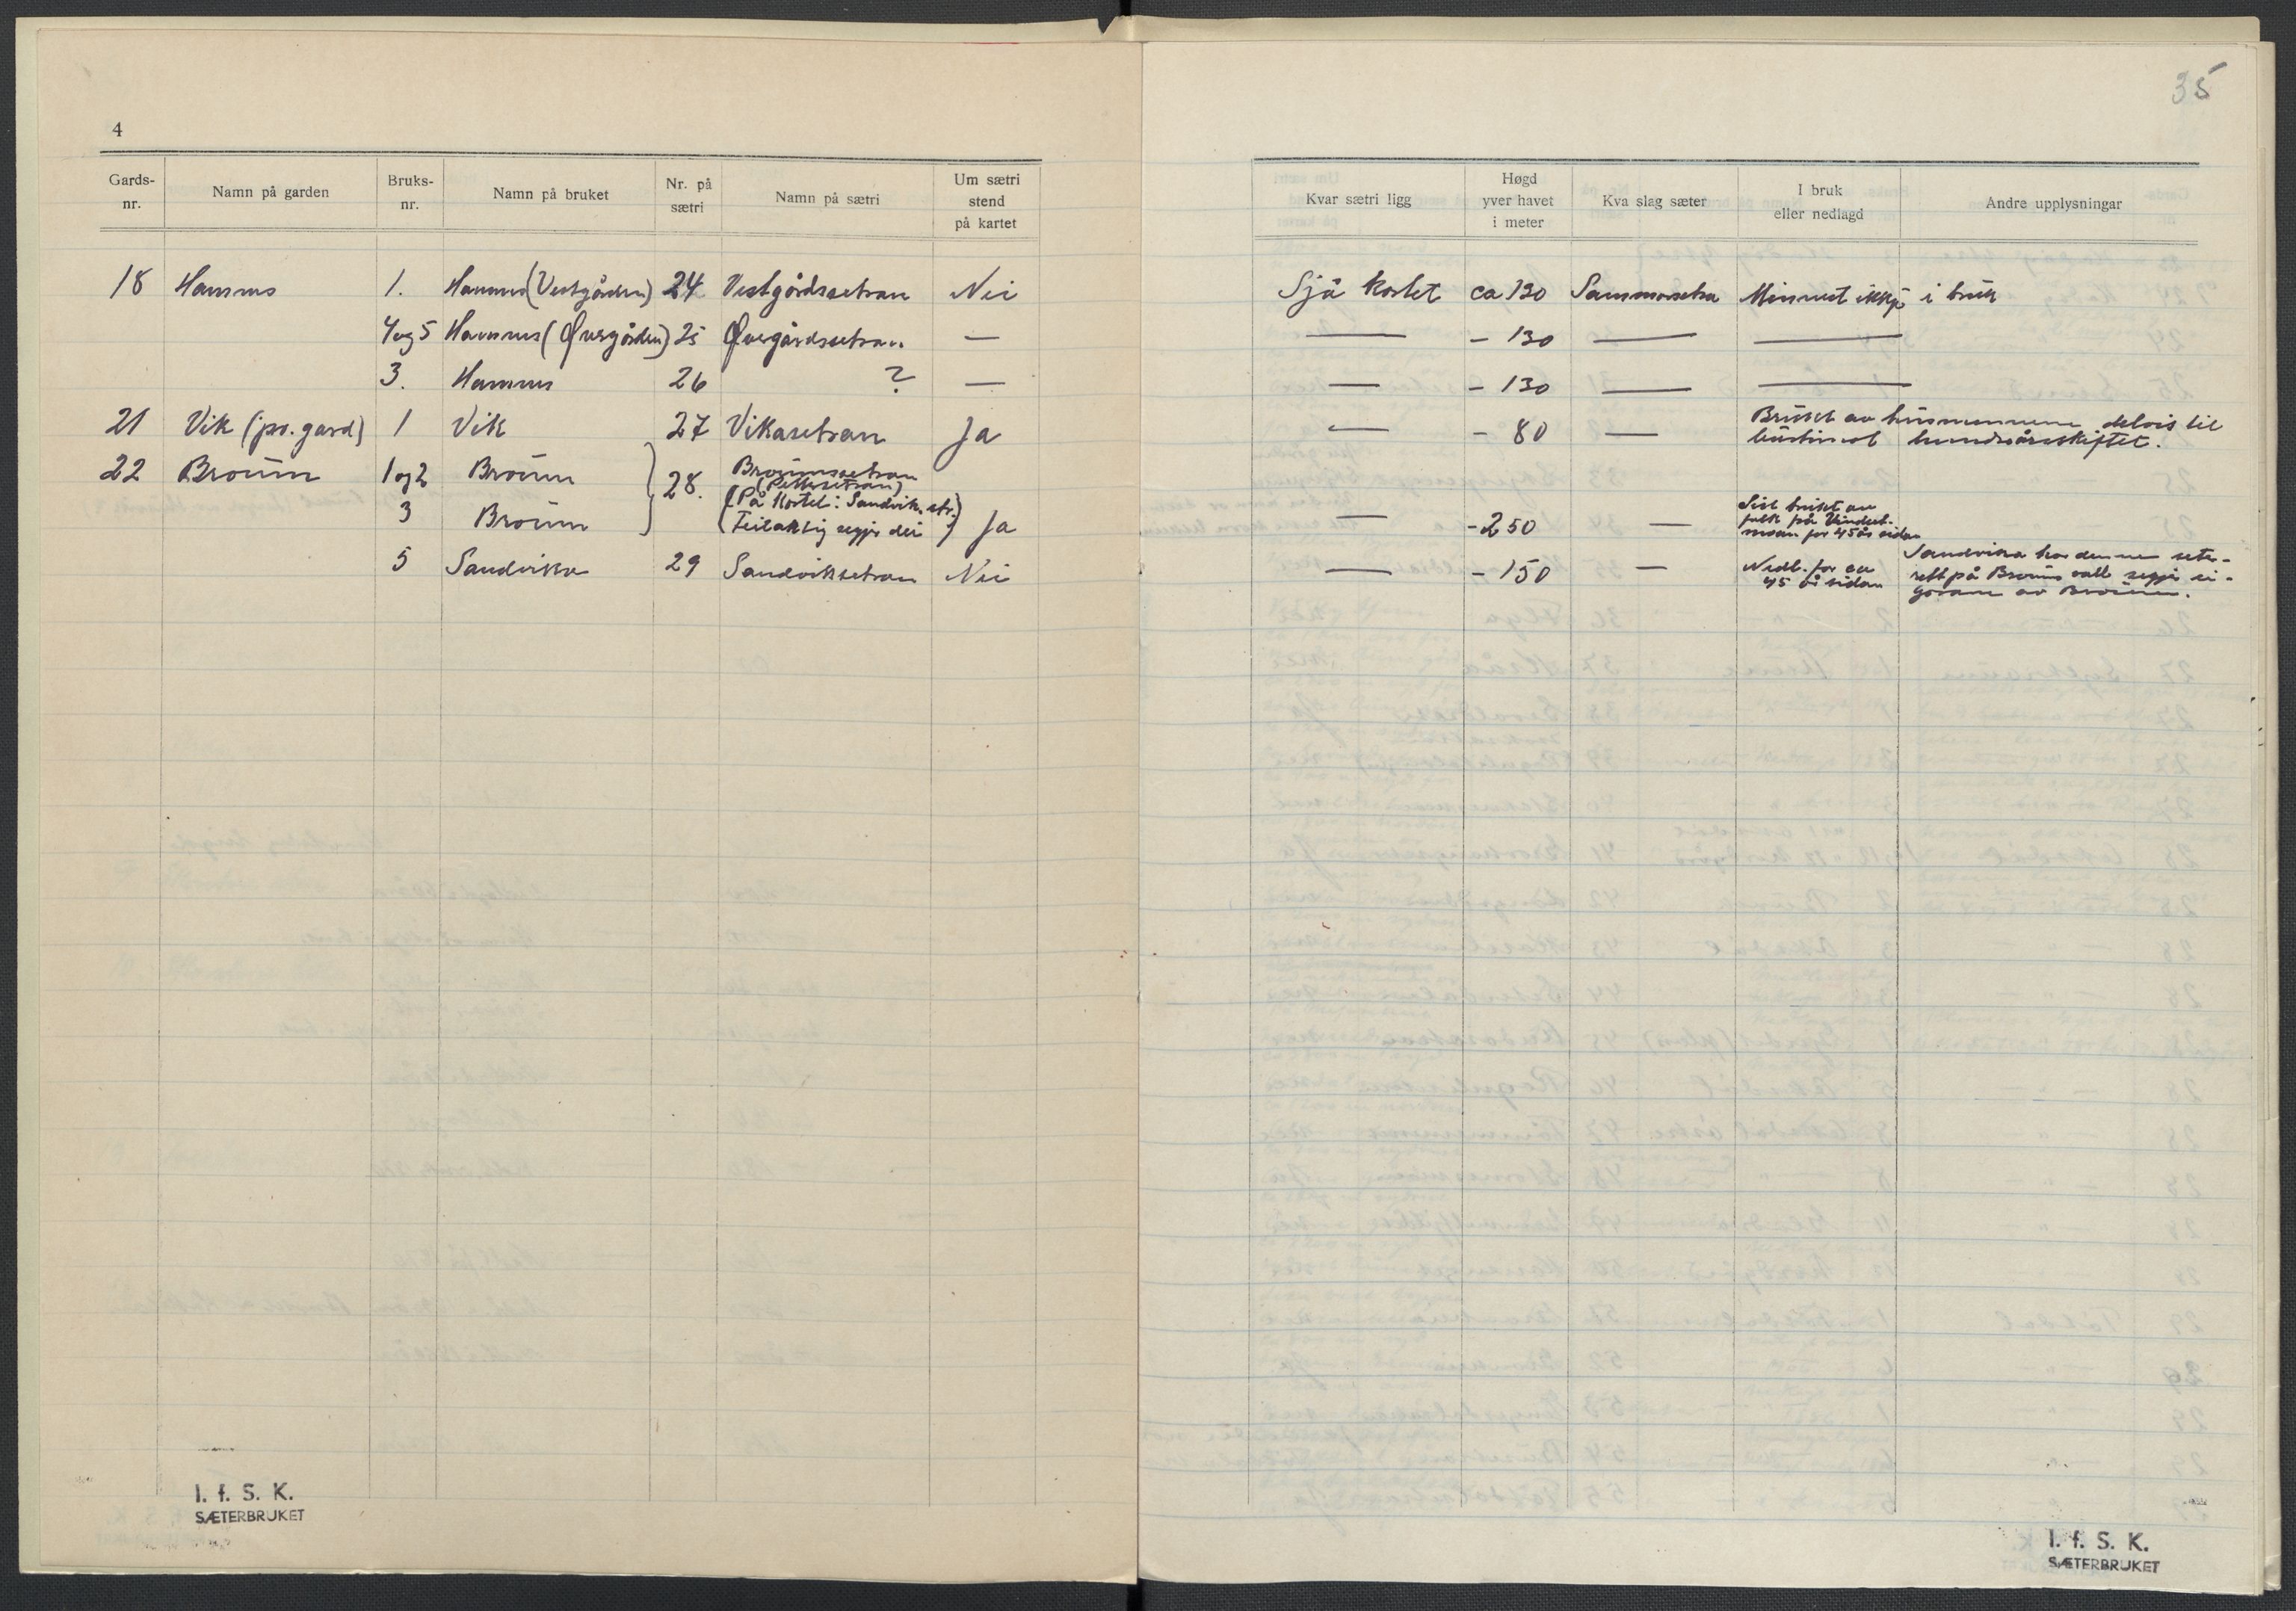 35
4
Gards-nr. Namn på garden Bruks-nr. Namn på bruket Nr. på sætri Namn på sætri Um sætri stend på kartet
Kvar sætri ligg Høgd yver havet i meter Kva slag sæter I bruk eller nedlagd Andre upplysningar
18 Hamnes 1. Hamnes (Vestgården) 24 Vestgårdssetran Nei Sjå kartet ca 130 Sommarsetra Minnest ikkje i bruk
4 og 5 Hamnes (Øvergården) 25 Øvergårdssetran — — - 130 — —
3. Hamnes 26 ? — — - 130 — —
21 Vik (pr. gard) 1 Vik 27 Vikasetran Ja — - 80 — Brukt av husmennene delvis til
hundreårsskiftet.
22 Broum 1 og 2 Broum 28. Broumsetran
(Pettersetran)
3 Broum (På Kartet: Sandvik.str.)
(Feilaktig segjer dei) Ja — - 250 — Sist brukt av
folk på
for 45 år sidan
5 Sandvika 29 Sandviksetran Nei — - 150 — Nedl. for ca
45 år sidan
Sandvika har denne seter-
rett på Broums vall segjer ei-
garane av Broum.
I. f. S. K.
SÆTERBRUKET
I. f. S. K.
SÆTERBRUKET